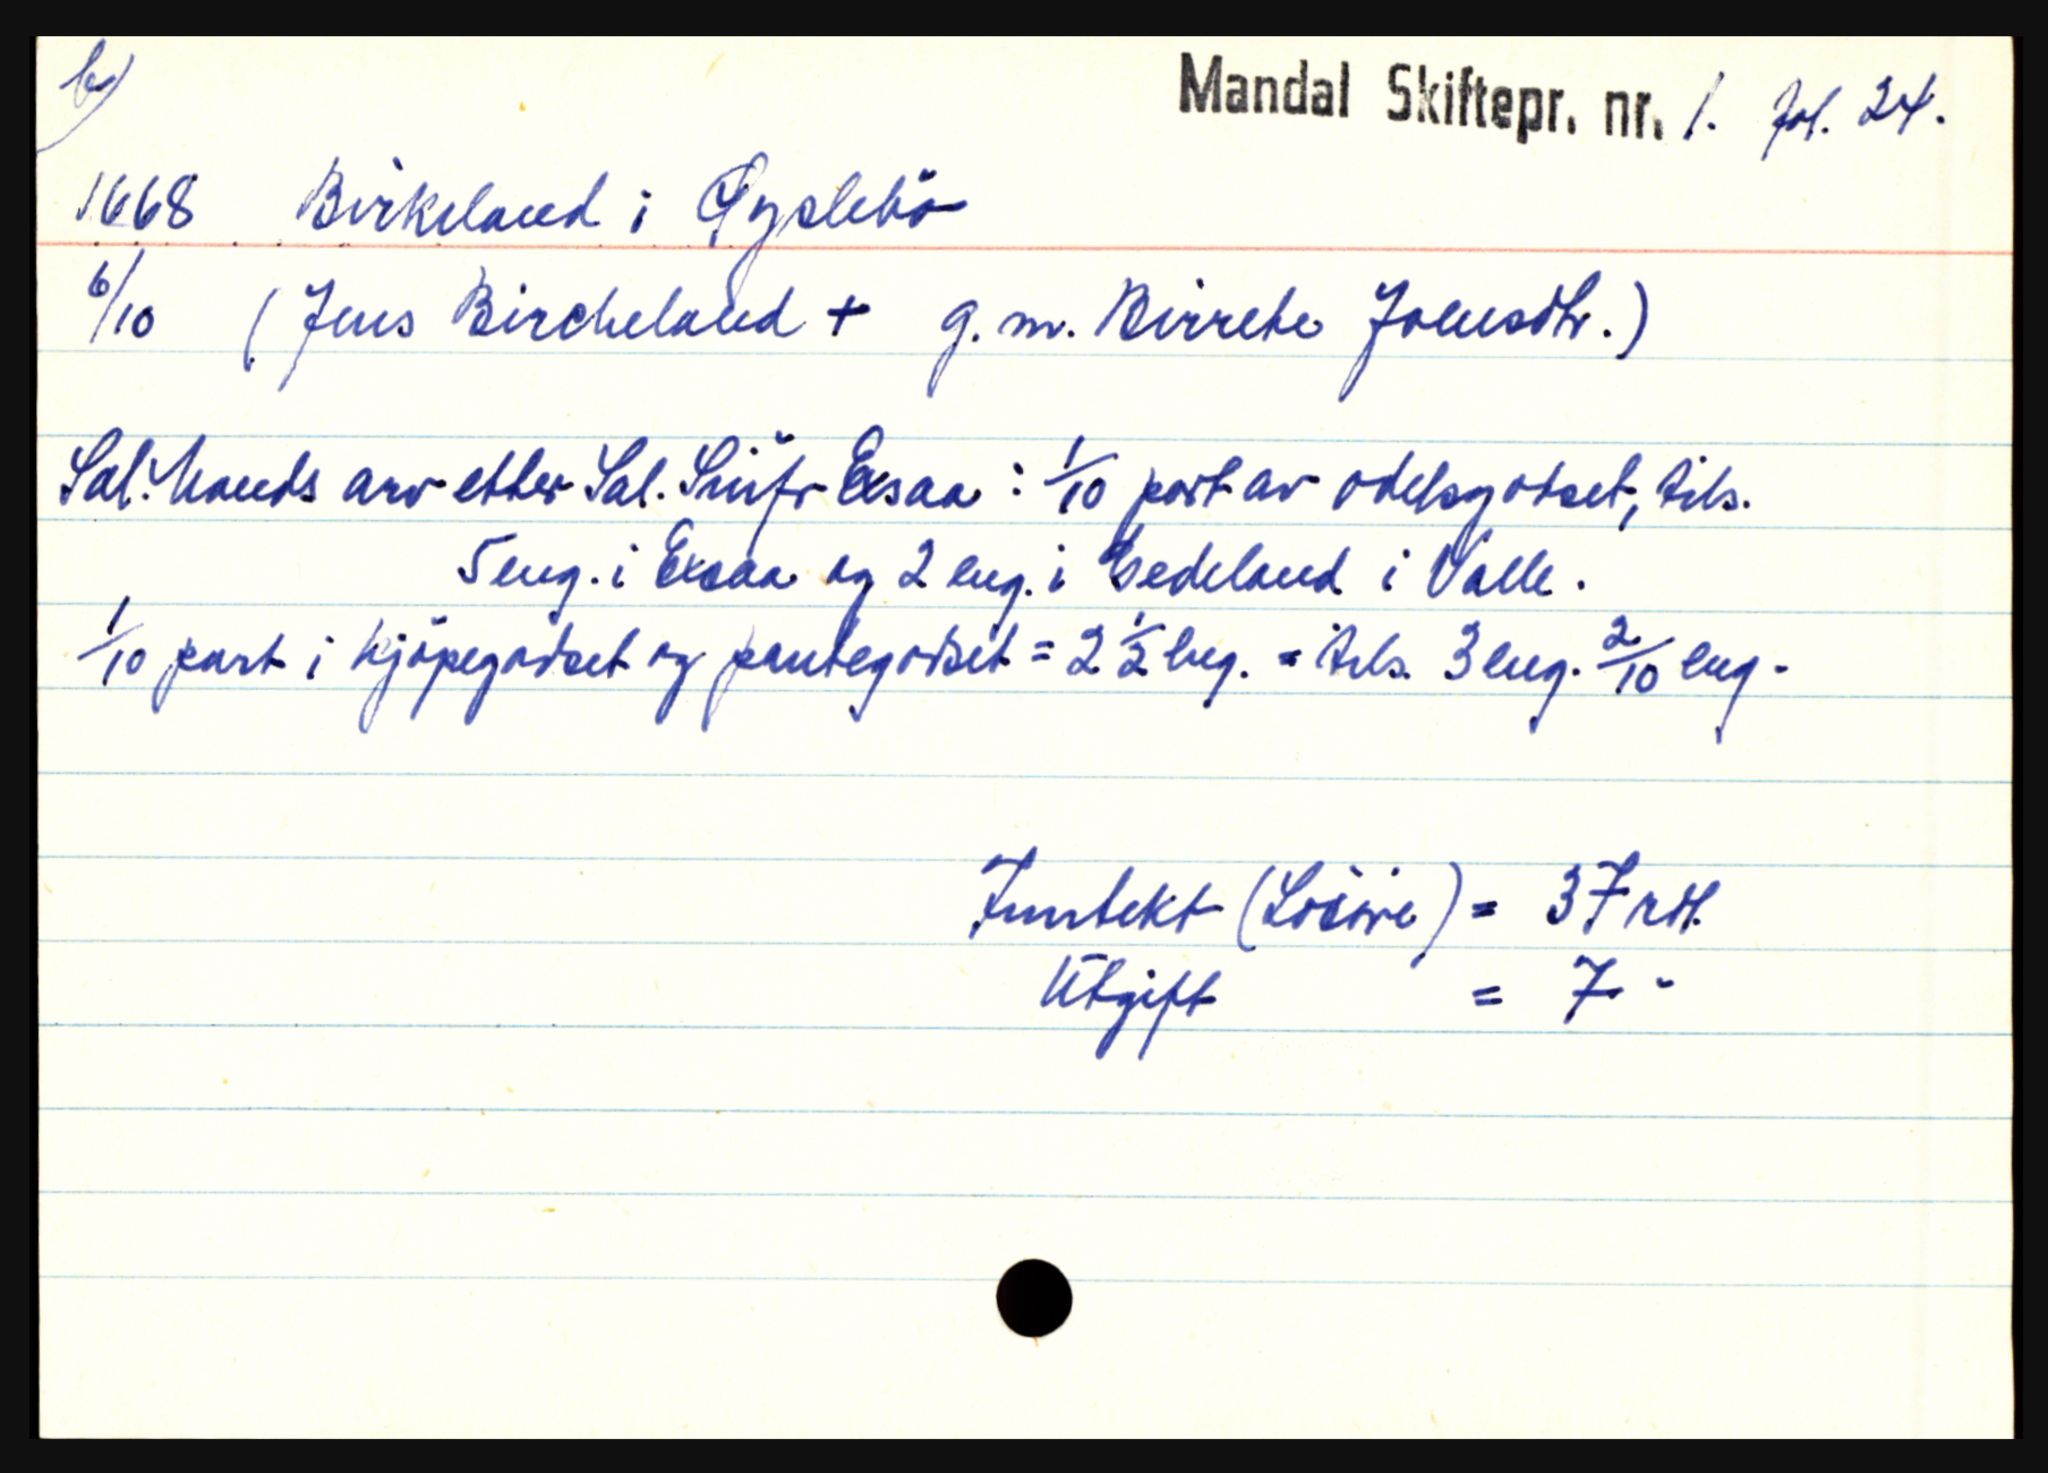 b)
Mandal Skiftepr. nr. 1. fol. 24.
1668 Birkeland i Øyslebö
6/10 (Jens Bircheland + g. m. Birrete Joensdtr.)
Sal. Mands arv etter Sal. Siufr Exsaa : 1/10 part av odelsgodset, tils.
5 eng. i Exsaa og 2 eng. i Eedeland i Valle.
1/10 part i kjöpegodset og pantegodset = 2 1/2 eng. = tils. 3 eng. 2/10 eng.
Inntekt (Lösöre) = 37 rdl.
Utgift = 7 "